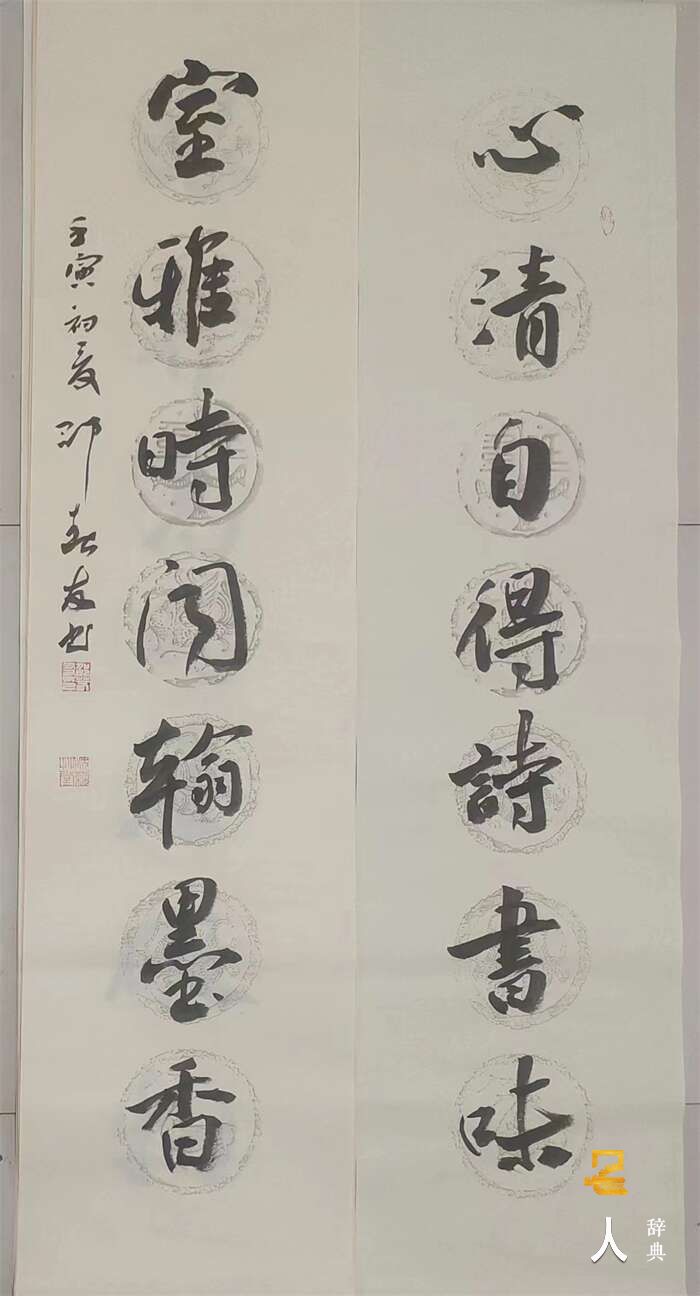 心清自得詩書味
室雅時聞翰墨香
壬寅初夏邵春友书
名
人
辞典